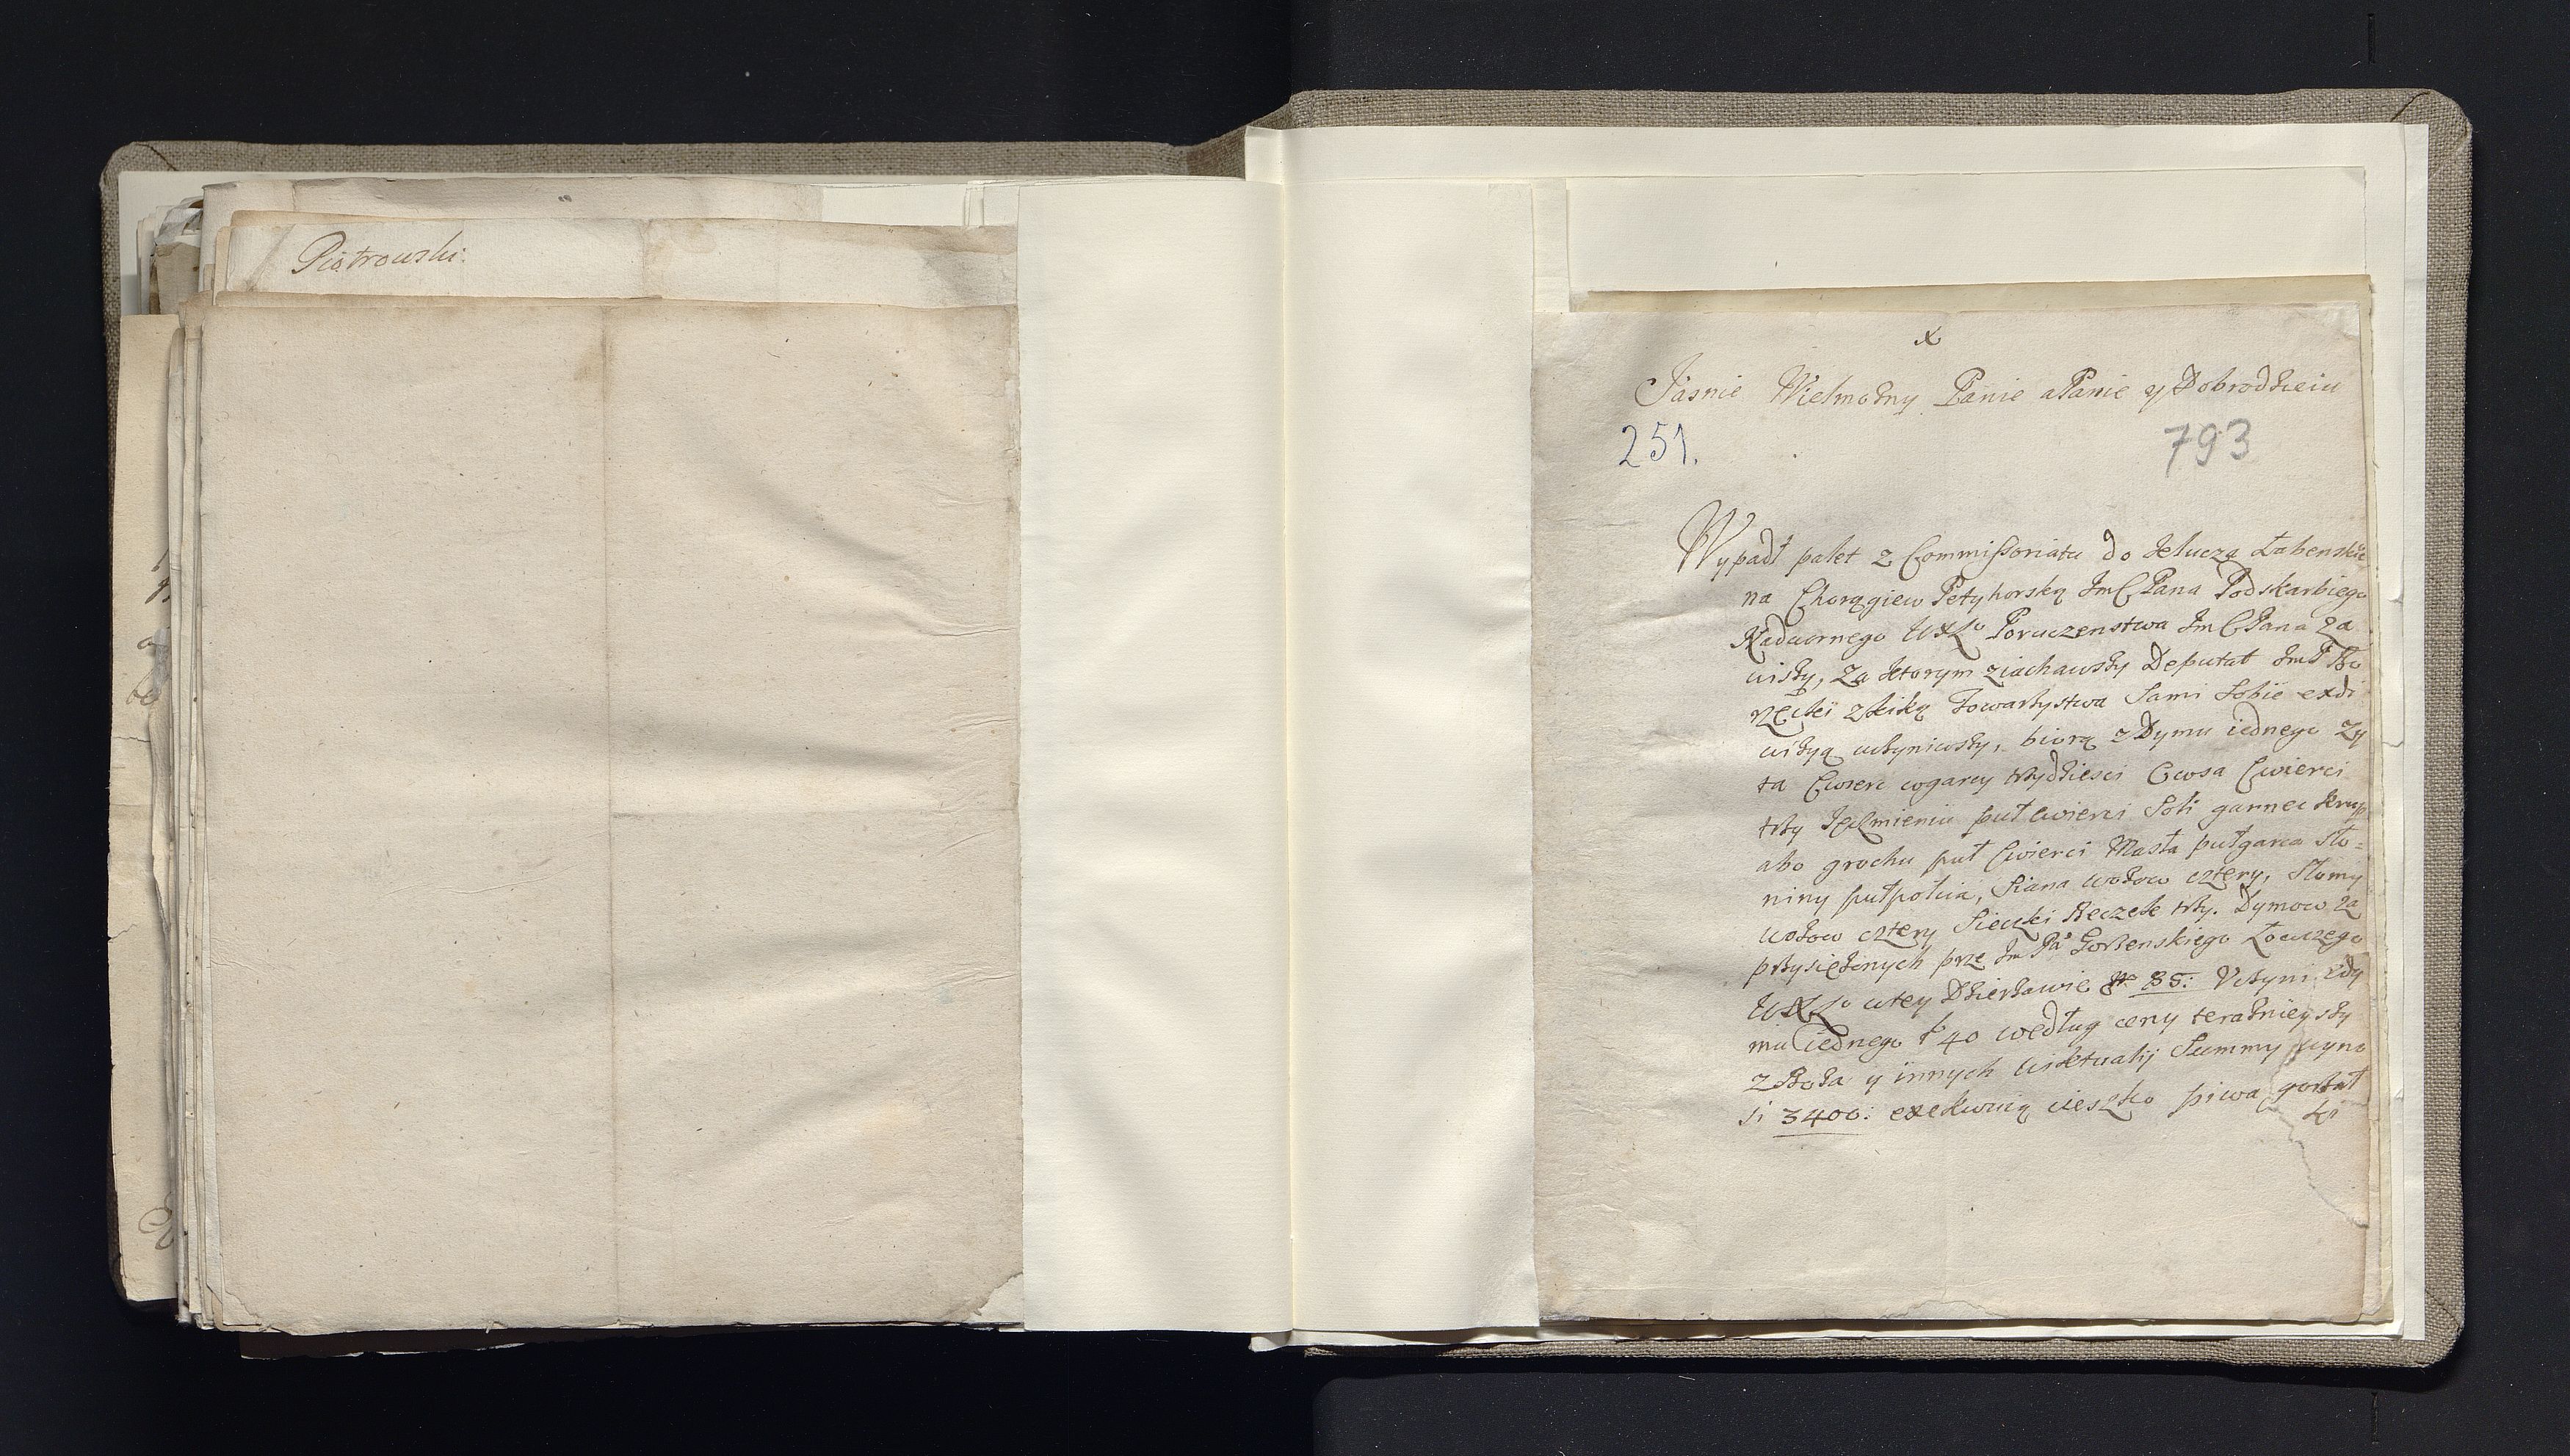 Piotrowski.
x
Jasnie Wielmożny Panie a Panie y Dobrodzieiu
251.
793
Wypadł palet z Commissoriatu do klucza
na Chorągiew Petyhorską JmC Pana Podskarbiego
Nadwornego WXLo Poruczenstwa JmC Pana Za
wiszy, za ktorym ziachawszy Deputat JmP
z kilką Towarzystwa sami sobie exdi
wizyą uczyniwszy, biorą z Dymu iednego Zy
ta Cwierc y garcy trzydziesci Owsa Cwierci
trzy Jęczmieniu puł cwierci Soli garniec krup
abo grochu puł Cwierci Masła puł garca Sło=
niny puł połcia, Siana wozow cztery, Słomy
wozow cztery Sieczki Beczek trzy. Dymow za
przysiężonych prze Jm Pa Łowczego
WXLo w tey Dzierżawie No 85: Uczyni z dy
mu iednego f 40 według ceny teraznieyszy
zboża y innych wiktualij Summy wyno
si 3400: exekwuią cieszko piwa gorzał
ki